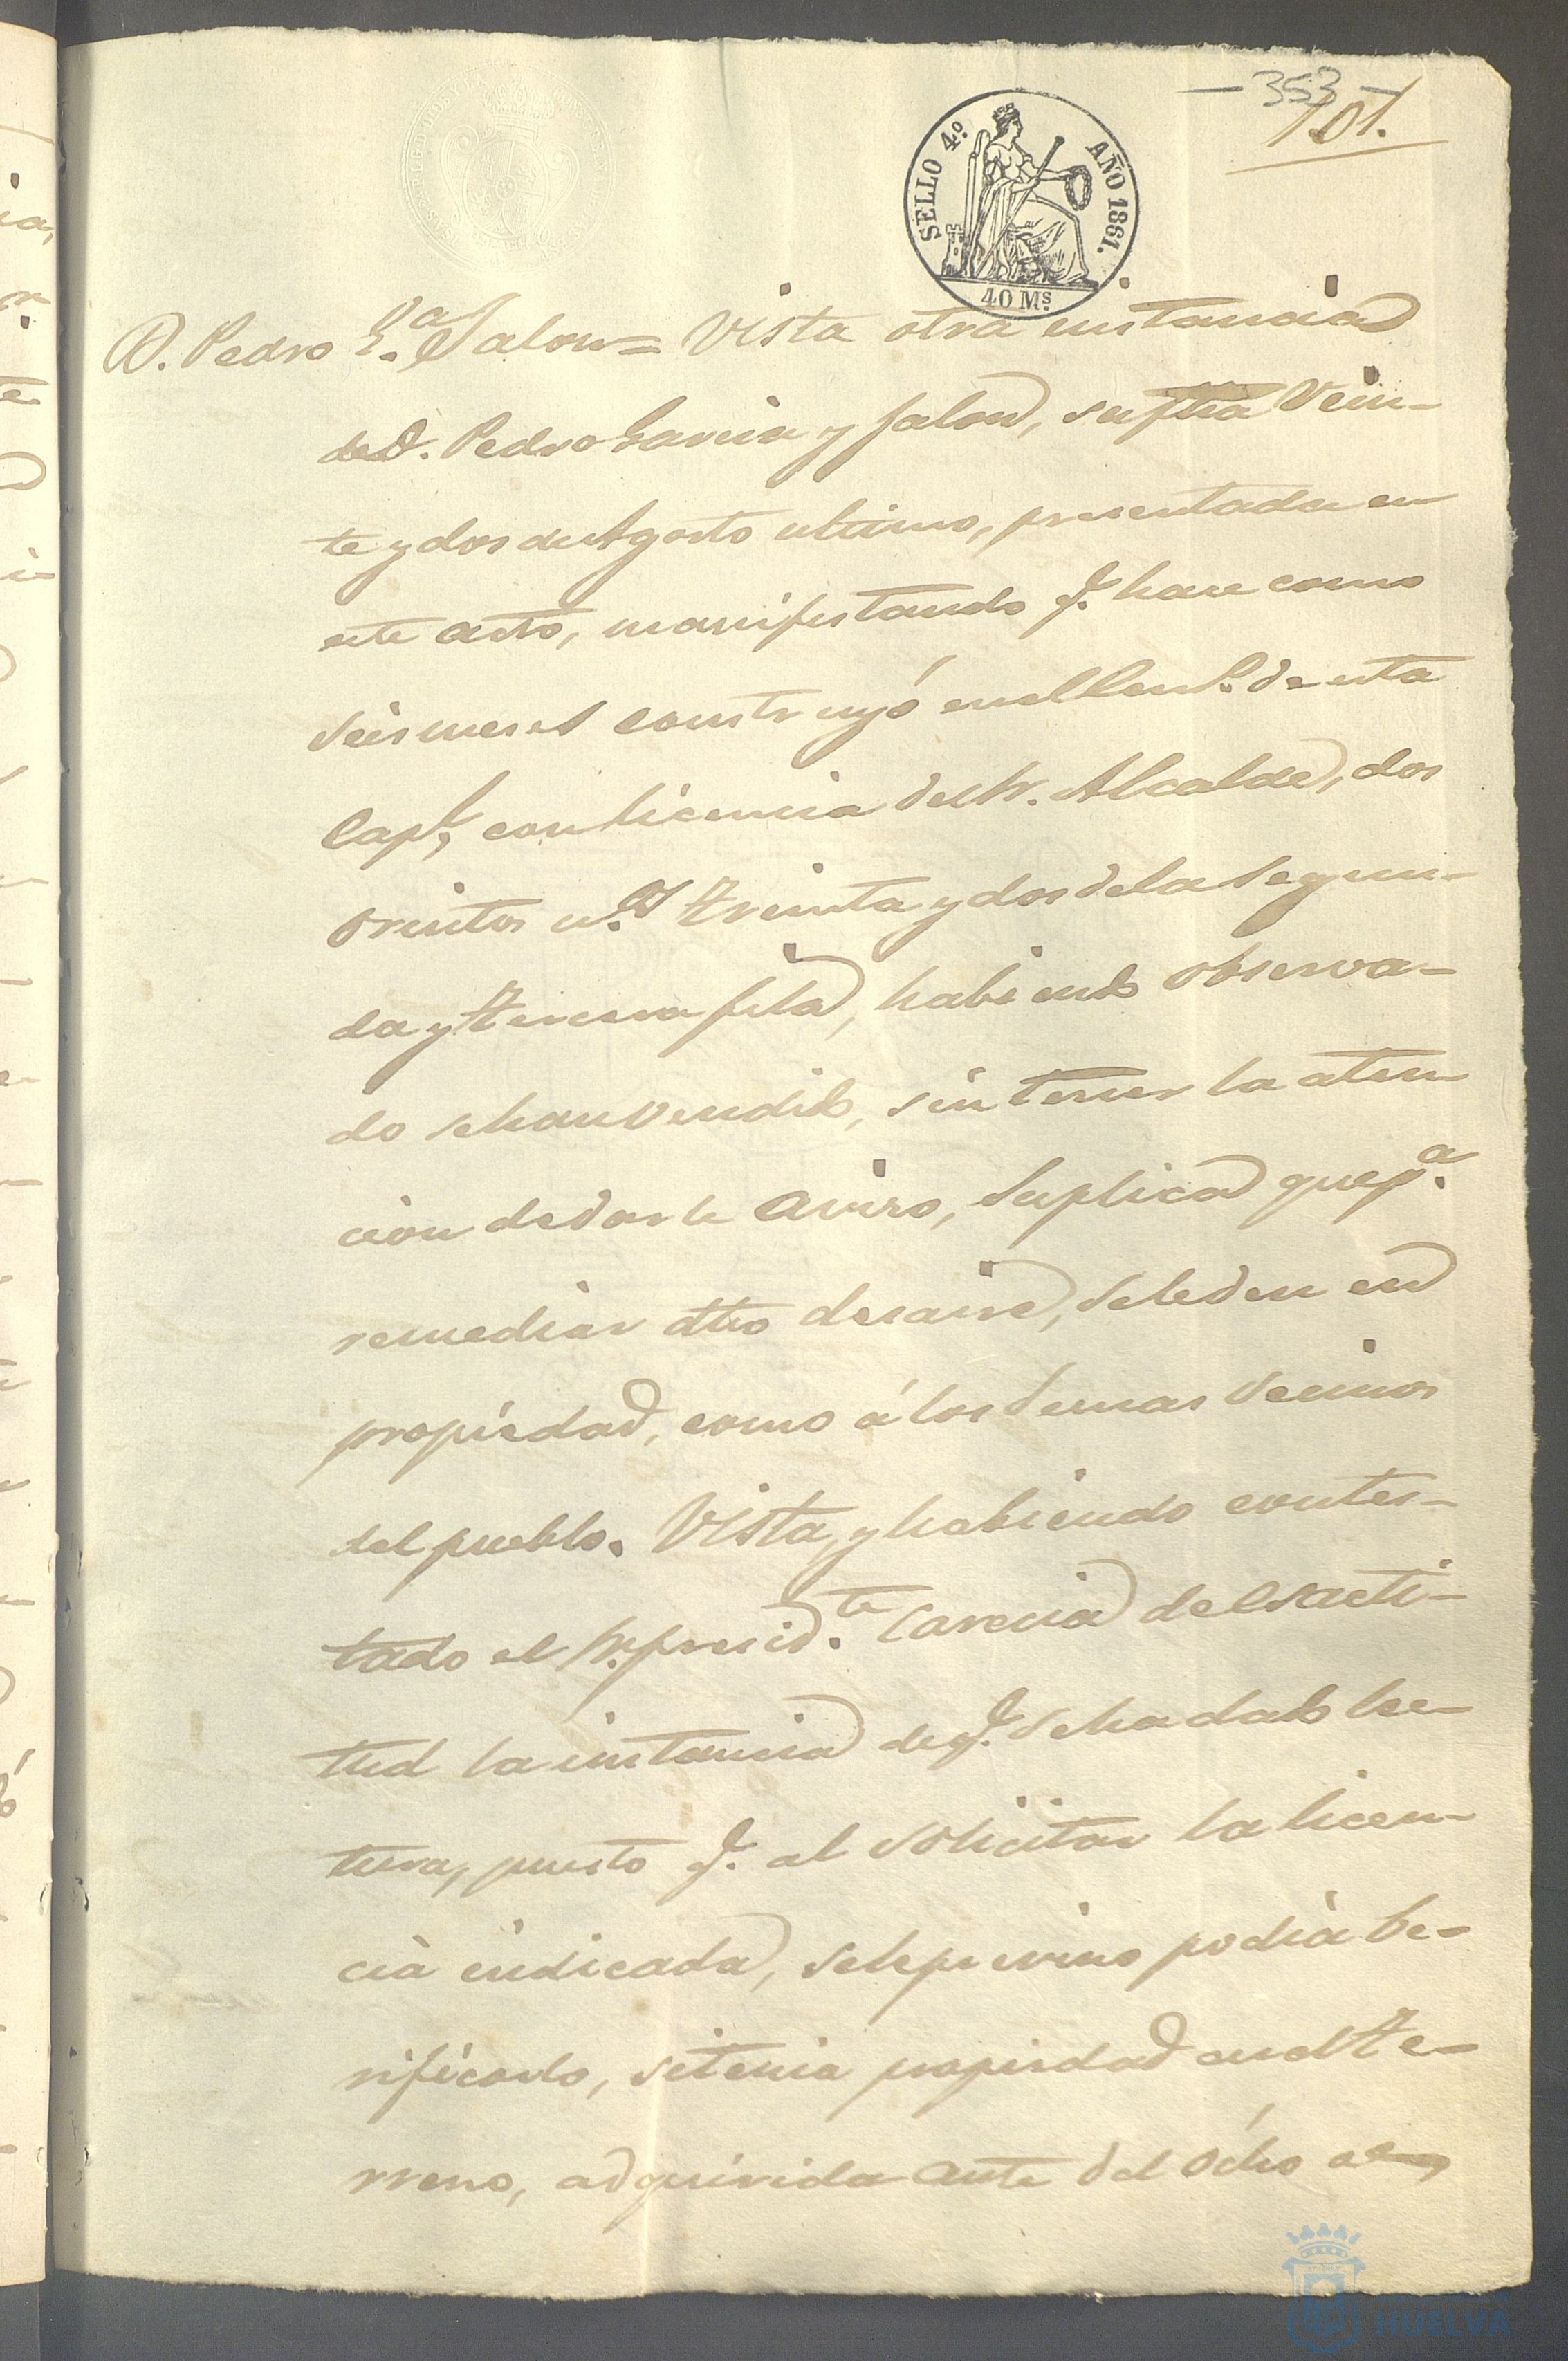 — 353 —
101.
SELLO 4.º AÑO 1861.
40 Ms.
D. Pedro G.ª Jalon = Vista otra instancia
de D. Pedro Garcia y Jalon, su fha Vein-
te y dos de Agosto ultimo, presentada en
este acto, manifestando q.e hace como
seis meses construyó en el Cem.º de esta
Cap.l, con licencia del Sr. Alcalde, dos
ornitos n.os treinta y dos de la segun-
da y tercera fila, habiendo observa-
do se han vendido, sin tener la aten
cion de darle aviso, Suplica que p.a
remediar dho desaire, se le den en
propiedad, como á los demas vecinos
del pueblo. Vista, y habiendo contes-
tado el Sr. presid.te carecia de esacti-
tud la instancia de q.e se ha dado lec-
tura, puesto q.e al solicitar la licen-
cia indicada, se le previno podia be-
rificarlo, si tenia propiedad en el te-
rreno, adquirida ante del ócho de
HUELVA